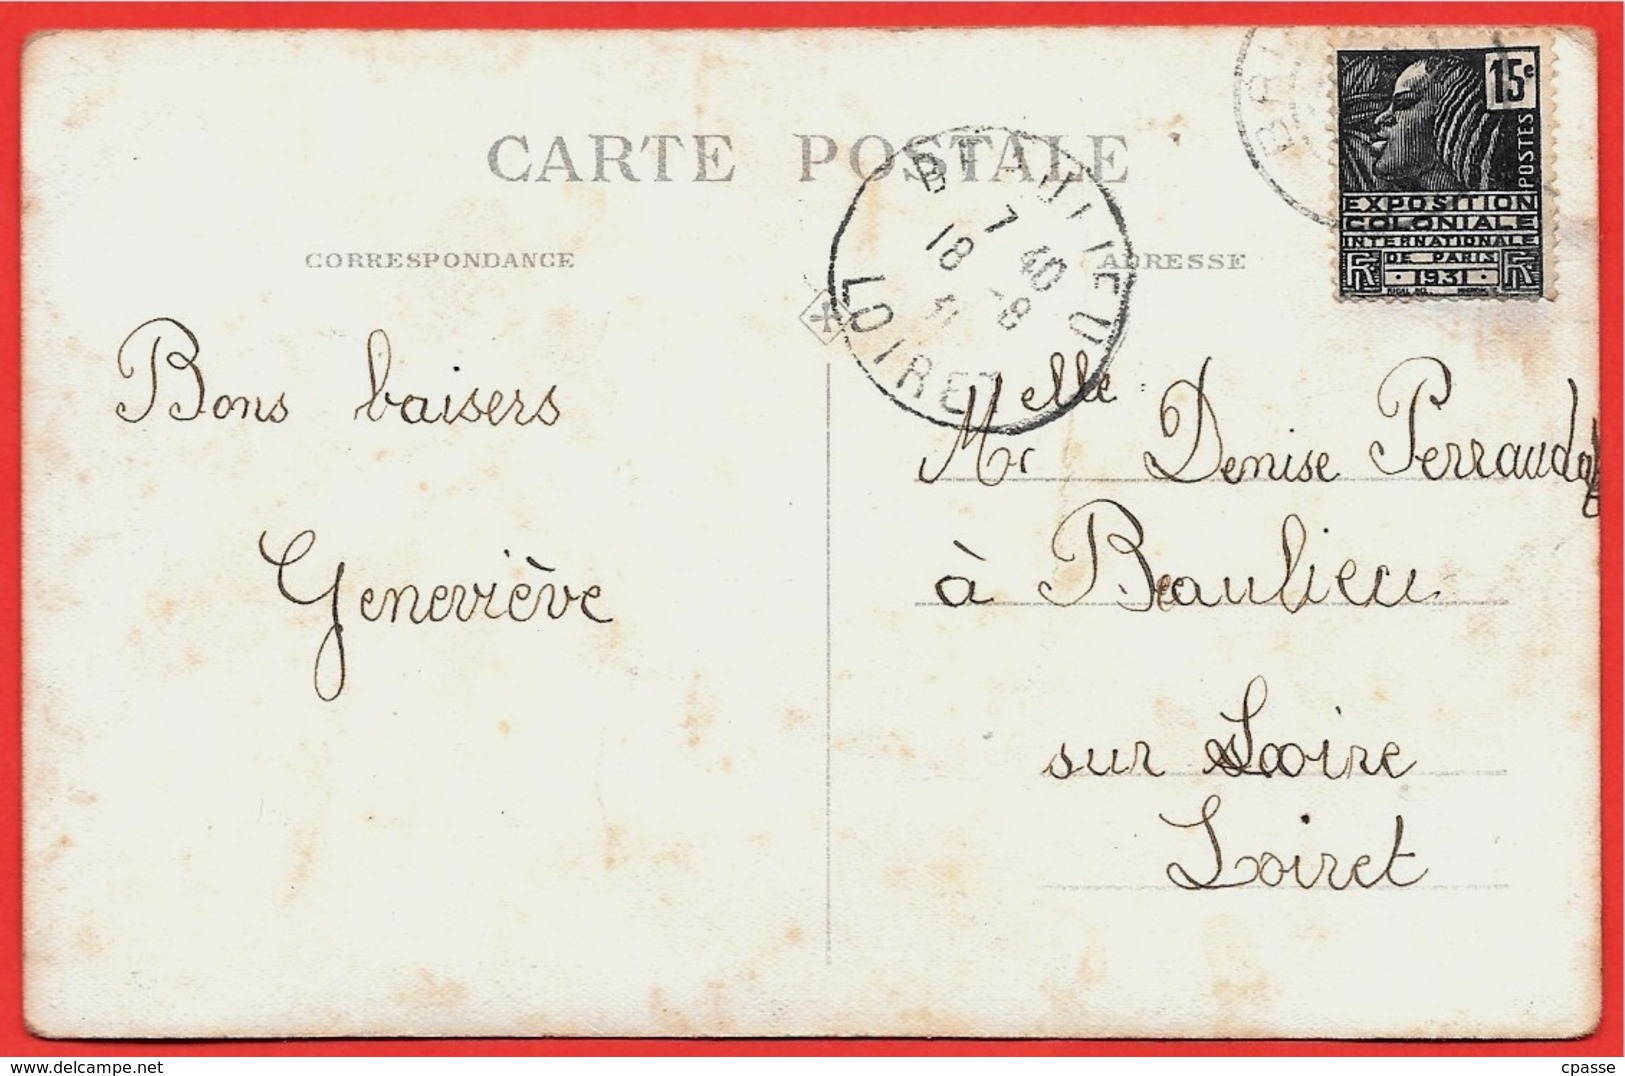 CARTE POSTALE
CORRESPONDANCE
ADRESSE
15c
POSTES
EXPOSITION
COLONIALE
INTERNATIONALE
DE PARIS
RF 1931 RF
7 40
18 8
31
LOIRET
Bons baisers
Geneviève
Melle Denise Perraud
à Beaulieu
sur Loire
Loiret
cpasse